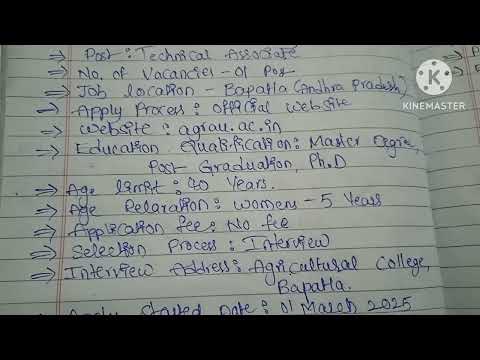 ⇒ Post : Technical Associate
⇒ No. of Vacancies - 01 Post
⇒ Job Location - Bapatla (Andhra Pradesh)
⇒ Apply Process : official website
⇒ Website : agrau.ac.in
⇒ Education Qualification : Master Degree,
Post Graduation, Ph.D
⇒ Age limit : 40 Years.
⇒ Age Relaxation : women - 5 Years
⇒ Application fee : No fee
⇒ Selection Process : Interview
⇒ Interview Address : Agricultural College,
Bapatla.
Apply Started Date : 01 March 2025
KINEMASTER